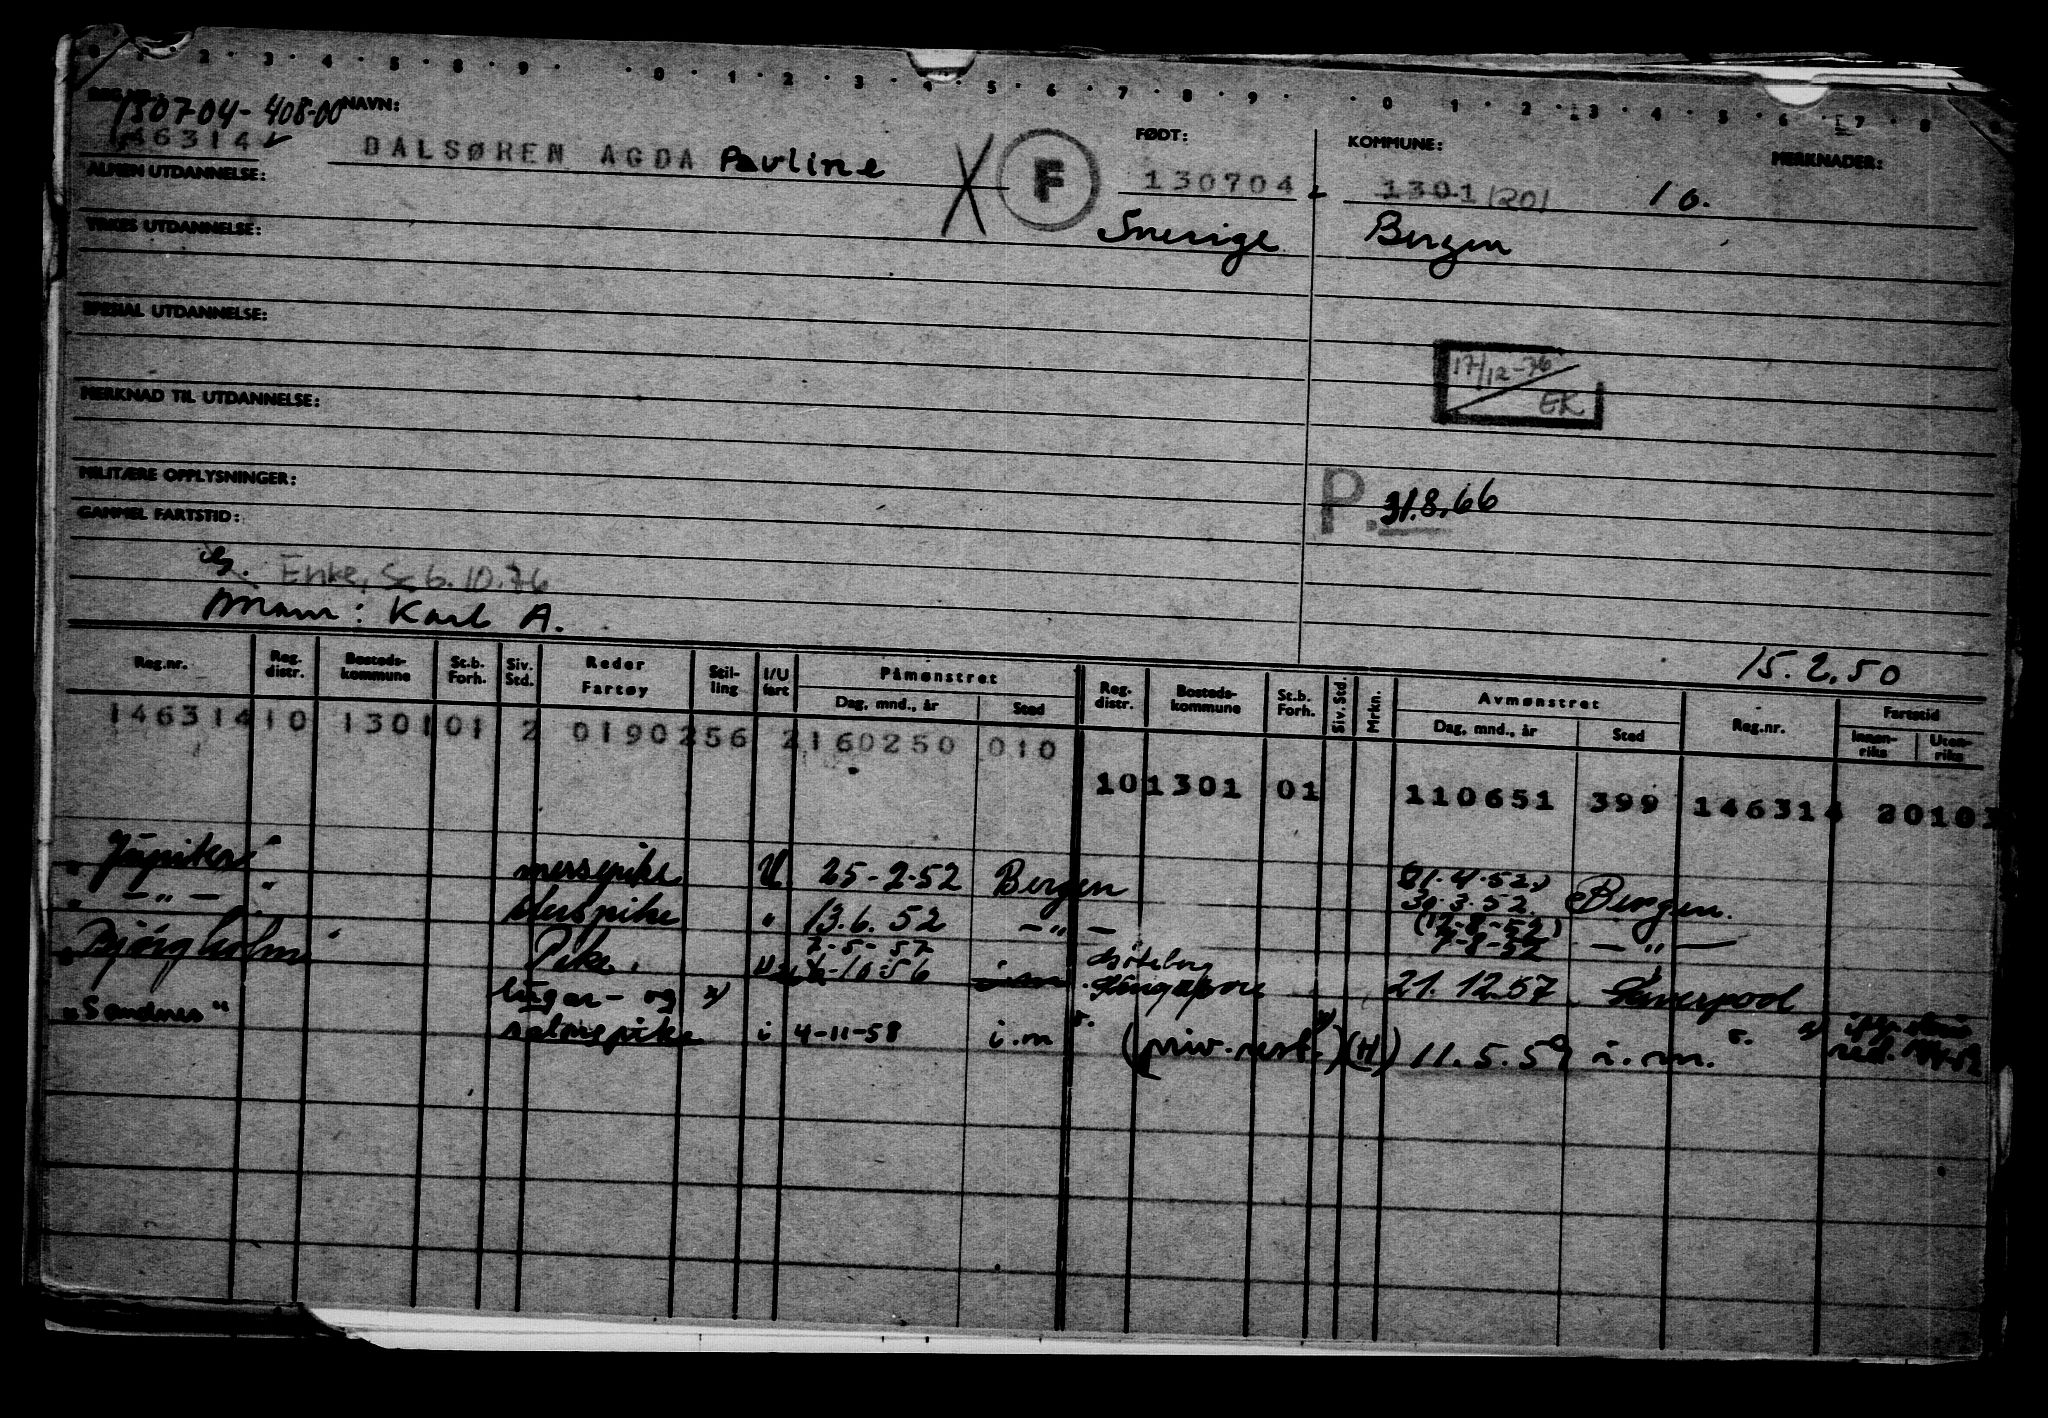 0 · 1 · 2 · 3 · 4 · 5 · 8 · 9 · · 0 · 1 · 2 · 3 · 4 · 5 · 6 · 7 · 8 · 9 · · 0 · 1 · 2 · 3 · 4 · 5 · 6 · 7 · 8
130704-408-00 NAVN: FØDT: KOMMUNE: MERKNADER:
146314
DALSØREN AGDA Pauline F 130704 1301/201 10.
ALMEN UTDANNELSE:
Sverige Bergen
YRKES UTDANNELSE:
SPESIAL UTDANNELSE:
17/12-76
EK
MERKNAD TIL UTDANNELSE:
MILITÆRE OPPLYSNINGER:
P. 31.8.66
GAMMEL FARTSTID:
Enke, Sc 6.10.76
Mann: Karl A.
15.2.50
Reg.nr. Reg. distr. Bosteds- kommune St.b. Forh. Siv. Std. Reder Fartøy Stil- ling I/U fart Påmønstret Dag, mnd., år Sted Reg. distr. Bosteds- kommune St.b. Forh. Siv. Std. Mrkn. Avmønstret Dag, mnd., år Sted Reg.nr. Fartstid Innen- riks Uten- riks
146314 10 1301 01 2 0190256 2 160250 010
10 1301 01 110651 399 146314 20103
"Jupiter" messepike U 25-2-52 Bergen 30.3.52 Bergen.
" — " — " Messpike " 13.6.52 — " — (12-8-52)
7-8-52 — " —
2-5-57 Göteborg
Bjørgholm Pike. 10-56 i.m. Singapore 21.12.57 Liverpool
lugar- og x)
"Sandnes" salongpike i 4-11-58 i.m (priv. rest.) (H) 11.5.59 i.m.